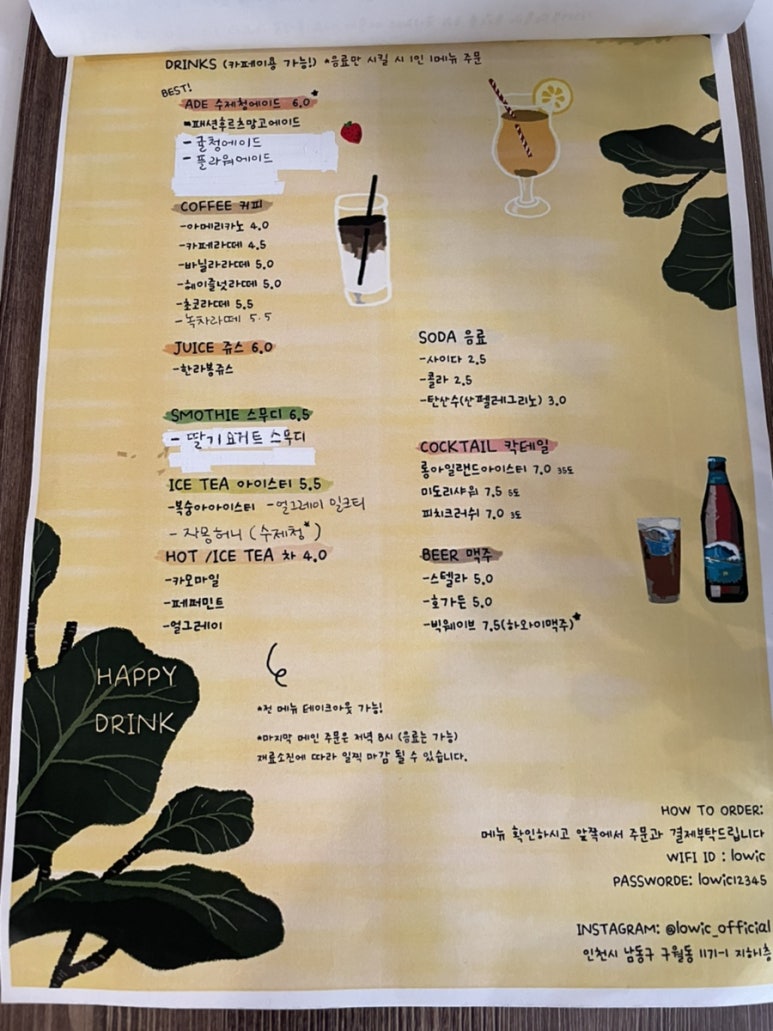 DRINKS (카페이용 가능!) *음료만 시킬 시 1인 1메뉴 주문
BEST!
ADE 수제청에이드 6.0*
-패션후르츠망고에이드
- 귤청에이드
- 플라워에이드
COFFEE 커피
-아메리카노 4.0
-카페라떼 4.5
-바닐라라떼 5.0
-헤이즐넛라떼 5.0
-초코라떼 5.5
-녹차라떼 5.5
JUICE 쥬스 6.0
-한라봉쥬스
SMOTHIE 스무디 6.5
- 딸기요거트 스무디
ICE TEA 아이스티 5.5
-복숭아아이스티 -얼그레이 밀크티
- 자몽허니 (수제청*)
HOT /ICE TEA 차 4.0
-카모마일
-페퍼민트
-얼그레이
SODA 음료
-사이다 2.5
-콜라 2.5
-탄산수(산펠레그리노) 3.0
COCKTAIL 칵테일
롱아일랜드아이스티 7.0 35도
미도리샤워 7.5 5도
피치크러쉬 7.0 3도
BEER 맥주
-스텔라 5.0
-호가든 5.0
-빅웨이브 7.5(하와이맥주)*
HAPPY
DRINK
*전 메뉴 테이크아웃 가능!
*마지막 메인 주문은 저녁 8시 (음료는 가능)
재료소진에 따라 일찍 마감 될 수 있습니다.
HOW TO ORDER:
메뉴 확인하시고 앞쪽에서 주문과 결제부탁드립니다
WIFI ID : lowic
PASSWORDE: lowic12345
INSTAGRAM: @lowic_official
인천시 남동구 구월동 1171-1 지하1층